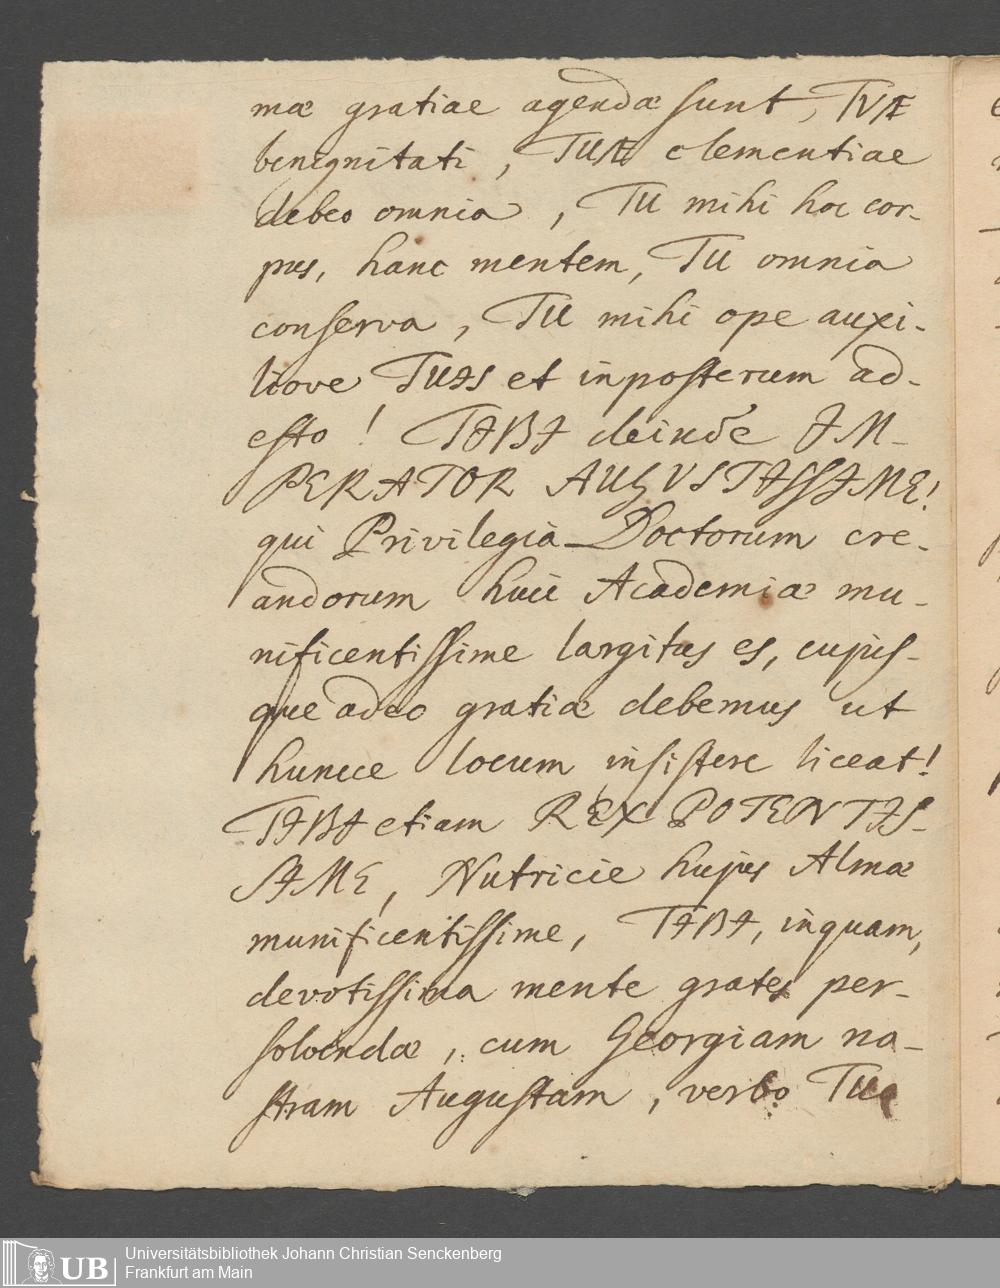 mæ gratiae agendæ sunt, TVÆ
benignitati, TUÆ clementiae
debeo omnia, TU mihi hoc cor-
pus, hanc mentem, TU omnia
conserva, TU mihi ope auxi-
liove TUIS et inposterum ad-
esto! TIBI deinde IM-
PERATOR AUGVSTISSIME!
qui Privilegia Doctorum cre-
andorum huic Academiæ mu-
nificentissime largitus es, cujus-
que adeo gratiæ debemus ut
huncce locum insistere liceat!
TIBI etiam REX POTENTIS-
SIME, Nutricie hujus Almæ
munificentissime, TIBI, inquam,
devotissima mente grates per-
solvendæ, cum Georgiam no-
stram Augustam, verbo Tuo
Universitätsbibliothek Johann Christian Senckenberg
Frankfurt am Main
UB